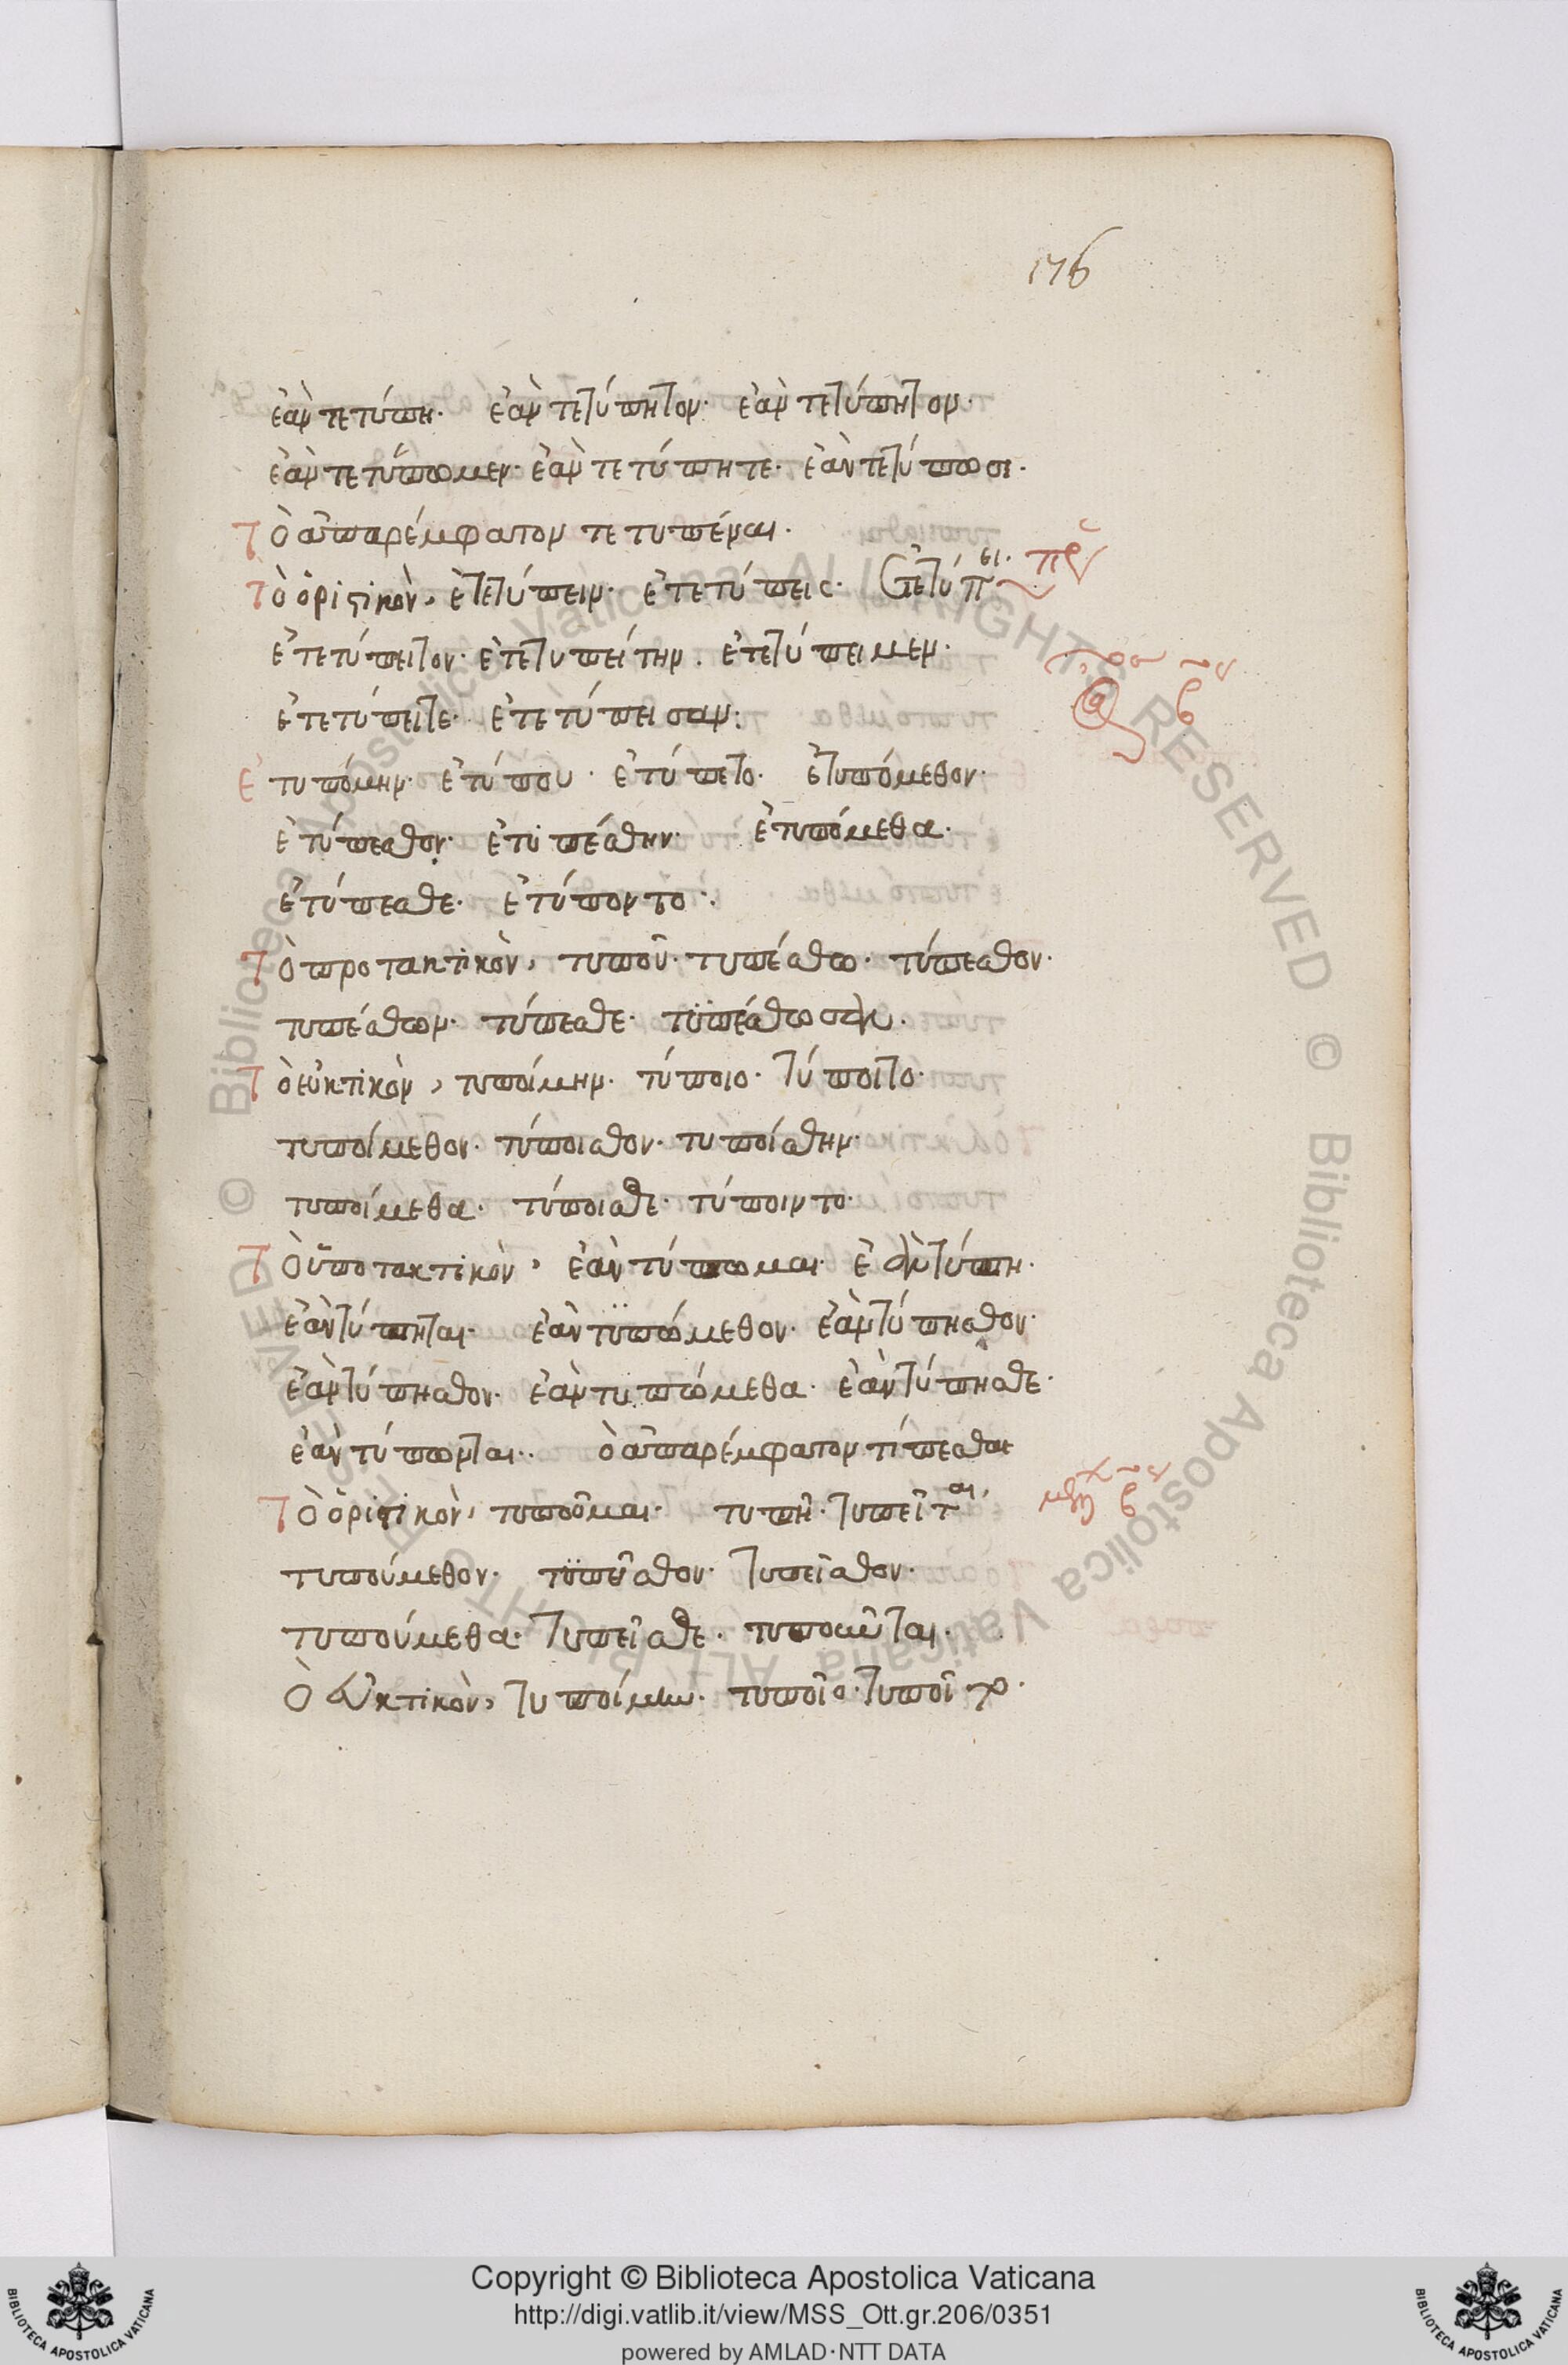 176
ἐὰν τετύπη· ἐὰν τετύπητον· ἐὰν τετύπητον·
ἐὰν τετύπωμεν· ἐὰν τετύπητε· ἐὰν τετύπωσι·
Τὸ ἀπαρέμφατον τετυπέναι·
Τὸ ὁριστικὸν, ἐτετύπειν· ἐτετύπεις· ἐτετύπει·
ἐτετύπειτον· ἐτετυπείτην· ἐτετύπειμεν·
ἐτετύπειτε· ἐτετύπεισαν:
ἐτυπόμην· ἐτύπου· ἐτύπετο· ἐτυπόμεθον·
ἐτύπεσθον· ἐτυπέσθην· ἐτυπόμεθα·
ἐτύπεσθε· ἐτύποντο:
Τὸ προτακτικὸν, τυποῦ· τυπέσθω· τύπεσθον·
τυπέσθων· τύπεσθε· τϋπέσθωσαν·
Τὸ εὐκτικὸν, τυποίμην· τύποιο· τύποιτο·
τυποίμεθον· τύποισθον· τυποίσθην·
τυποίμεθα· τύποισθε· τύποιντο·
Τὸ ὑποτακτικὸν, ἐὰν τύπωμαι· ἐὰν τύπη·
ἐὰν τύπηται· ἐὰν τϋπώμεθον· ἐὰν τύπησθον·
ἐὰν τύπησθον· ἐὰν τυπώμεθα· ἐὰν τύπησθε·
ἐὰν τύπωνται· ὸ ἀπαρέμφατον τύπεσθαι
Τὸ ὁριστικὸν, τυποῦμαι· τυπῆ· τυπεῖται·
τυπούμεθον· τϋπεῖσθον· τυπεῖσθον·
τυπούμεθα· τυπεῖσθε· τυποῦνται·
Ὸ εὐκτικὸν, τυποίμην· τυποῖο· τυποῖτο·
Copyright © Biblioteca Apostolica Vaticana
http://digi.vatlib.it/view/MSS_Ott.gr.206/0351
powered by AMLAD·NTT DATA